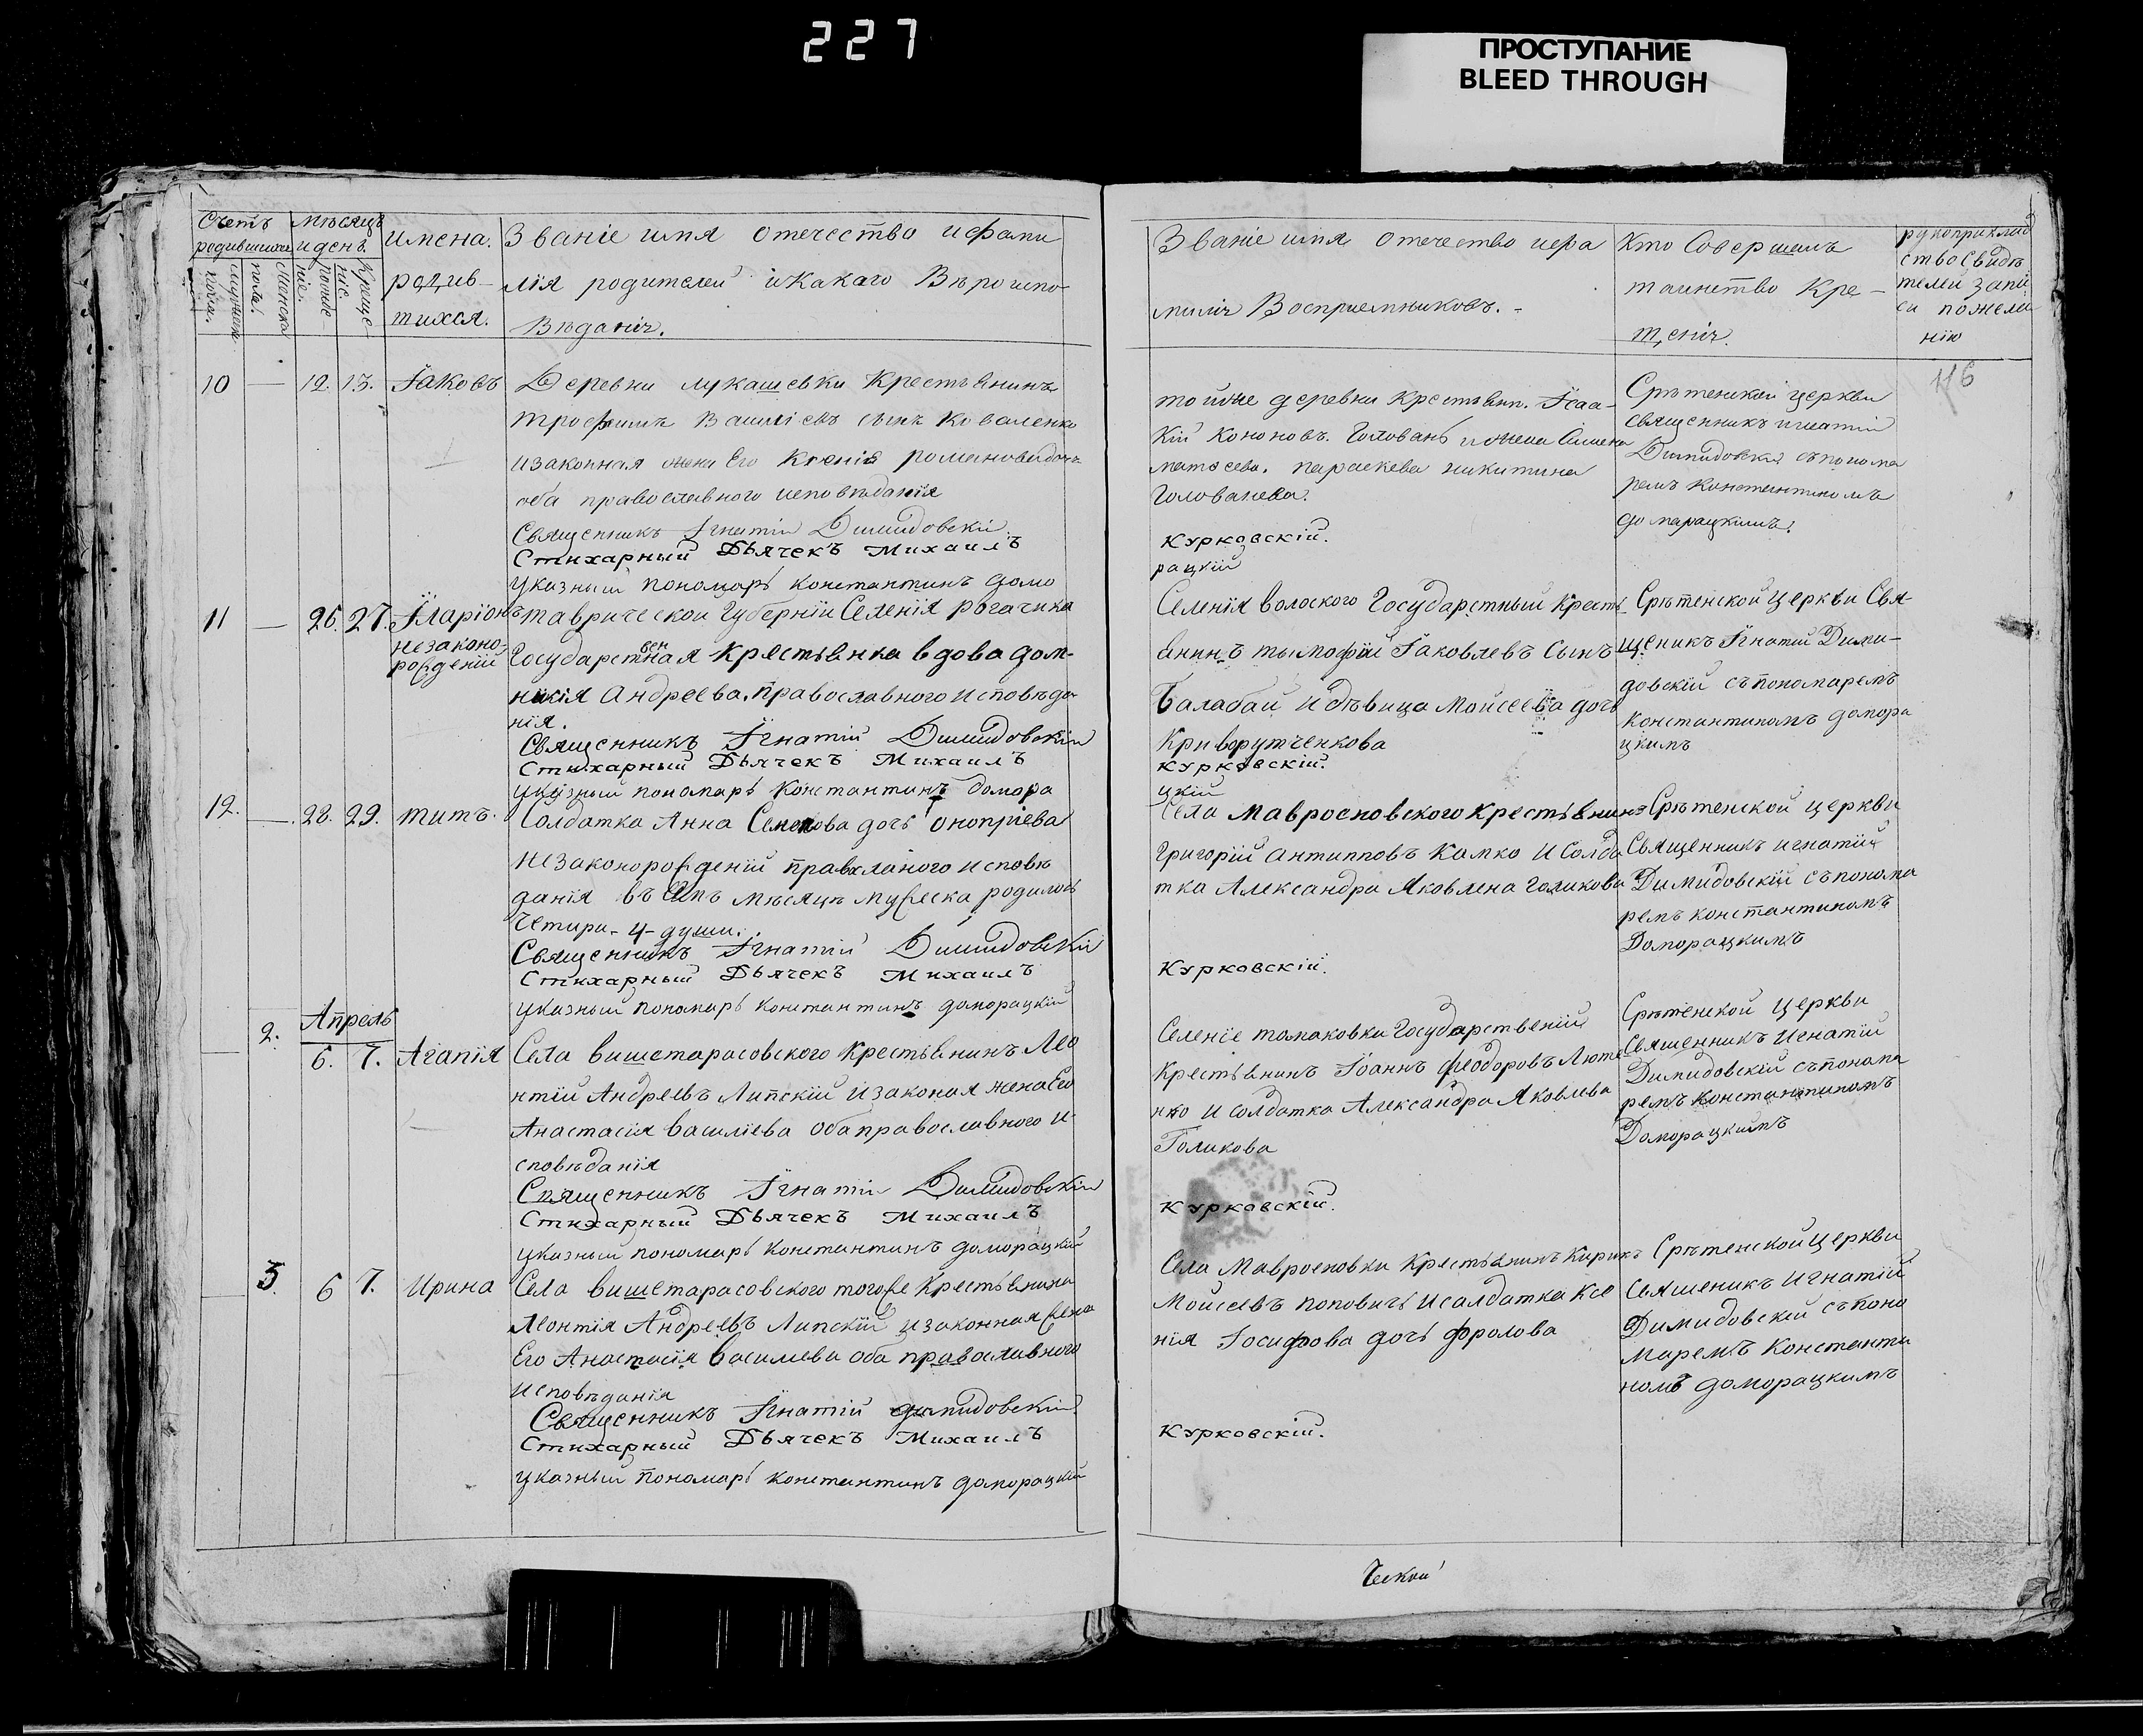 227
ПРОСТУПАНИЕ
BLEED THROUGH
Счетъ родившихся
мужеска пола.
Женска пола.
Мѣсяцъ и день.
рожде-
ніе.
Креще-
ніе.
Имена.
родив-
шихся.
Званіе имя отечество ифами
лія родителей икакаго Вѣроиспо-
Вѣданія.
Званіе имя Отечество ифа
миліи Воспріемниковъ.
Кто Совершалъ
таинство Кре-
щеніч.
рукоприклад
ство Свидѣ
телей запи
си пожела
нію
116
10 — 12. 13. Іаковъ
Деревни лукашевки Крестьянинъ
Трофимъ Василіевъ сынъ Коваленко
изаконная жена Его Ксенія романовадочь
оба православного исповѣданія
Священникъ Ігнатій Димидовскій
Стихарный Дьячекъ Михаилъ
Указный пономарь константинъ домо
тойже деревни крестьян. Ісаа-
кій Кононовъ. Головань ижена
матѳеева. параскева никитина
Голованева.
Курковскій.
рацкій
Срѣтенской церкви
священникъ игнатій
Димидовскій съпонома
ремъ Константиномъ
доморацкимъ.
11 — 26. 27. Іларіонъ
незаконо-
рожденій
таврической Губерніи Селенія рогачика
Государственная крестьянка вдова дом-
никія Андреева. православного исповѣда
нія.
Священникъ Ігнатій Димидовскій
Стихарный Дьячекъ Михаилъ
указный пономарь Константинъ домора
Селенія волоского Государстный кресть-
янинъ тымофій Іаковлевъ Сынъ
Балабай идѣвица Мойсеева дочь
Криворутченкова
Курковскій.
цкій
Срѣтенской церкви Свя-
щеникъ Ігнатій Дими-
довскій съпономаремъ
Константиномъ домора
цкимъ
12. — 28. 29. титъ.
Солдатка Анна Семенова дочь оноприева
незаконорожденій правосланого исповѣ
данія въ Семъ мѣсяцѣ мужеска родилось
Четири-4-души.
Священникъ Ігнатій Димидовскій
Стихарный Дьячекъ Михаилъ
указный пономарь константинъ доморацкій
Села Мавроеновского крестьянинъ
Григорій антипповъ Камко и Солда
тка Александра Яковлена голикова
Курковскій.
Срѣтенской церкви
Священникъ игнатій
Димидовскій съпонома
ремъ константиномъ
Доморацкимъ
Апрель
— 2. 6. 7. Агапія
Села вишетарасовского крестьянинъ Лео
нтій Андреевъ Липскій изаконая женаЕго
Анастасія василіева обаправославного и-
сповѣданія
Священникъ Ігнатій Димидовскій
Стихарный Дьячекъ Михаилъ
указный пономарь константинъ доморацкій
Селеніе томаковки Государственій
крестьянинъ Іоаннъ феодоровъ Люте
нко и солдатка Александра Яковлева
Голикова
Курковскій.
Срѣтенской церкви
Священикъ Игнатій
Димидовскій съпонома
ремъ константиномъ
Доморацкимъ
— 3. 6 7. Ирина
Села вишетарасовского тогоже крестьянина
Леонтія Андреевъ Липскій изаконная жена
Его Анастасія василиева оба православного
исповѣданія
Священникъ Ігнатій димидовскій
Стихарный Дьячекъ Михаилъ
указный пономарь константинъ доморацкій
Села Мавроеновки Крестьянинъ Кирикъ
Мойсеевъ поповичь исалдатка Ксе
нія Іосифова дочь фролова
Курковскій.
Срѣтенской церкви
Священикъ Игнатій
Димидовскій съпоно
маремъ константи
номъ доморацкимъ
ческой